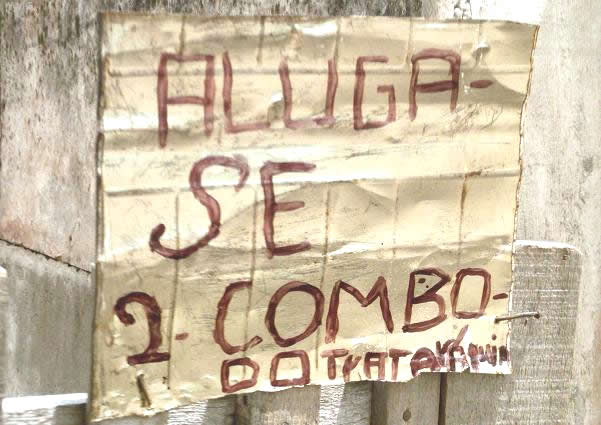 ALUGA-
SE
2-COMBO-
DO TRATAR AQUI